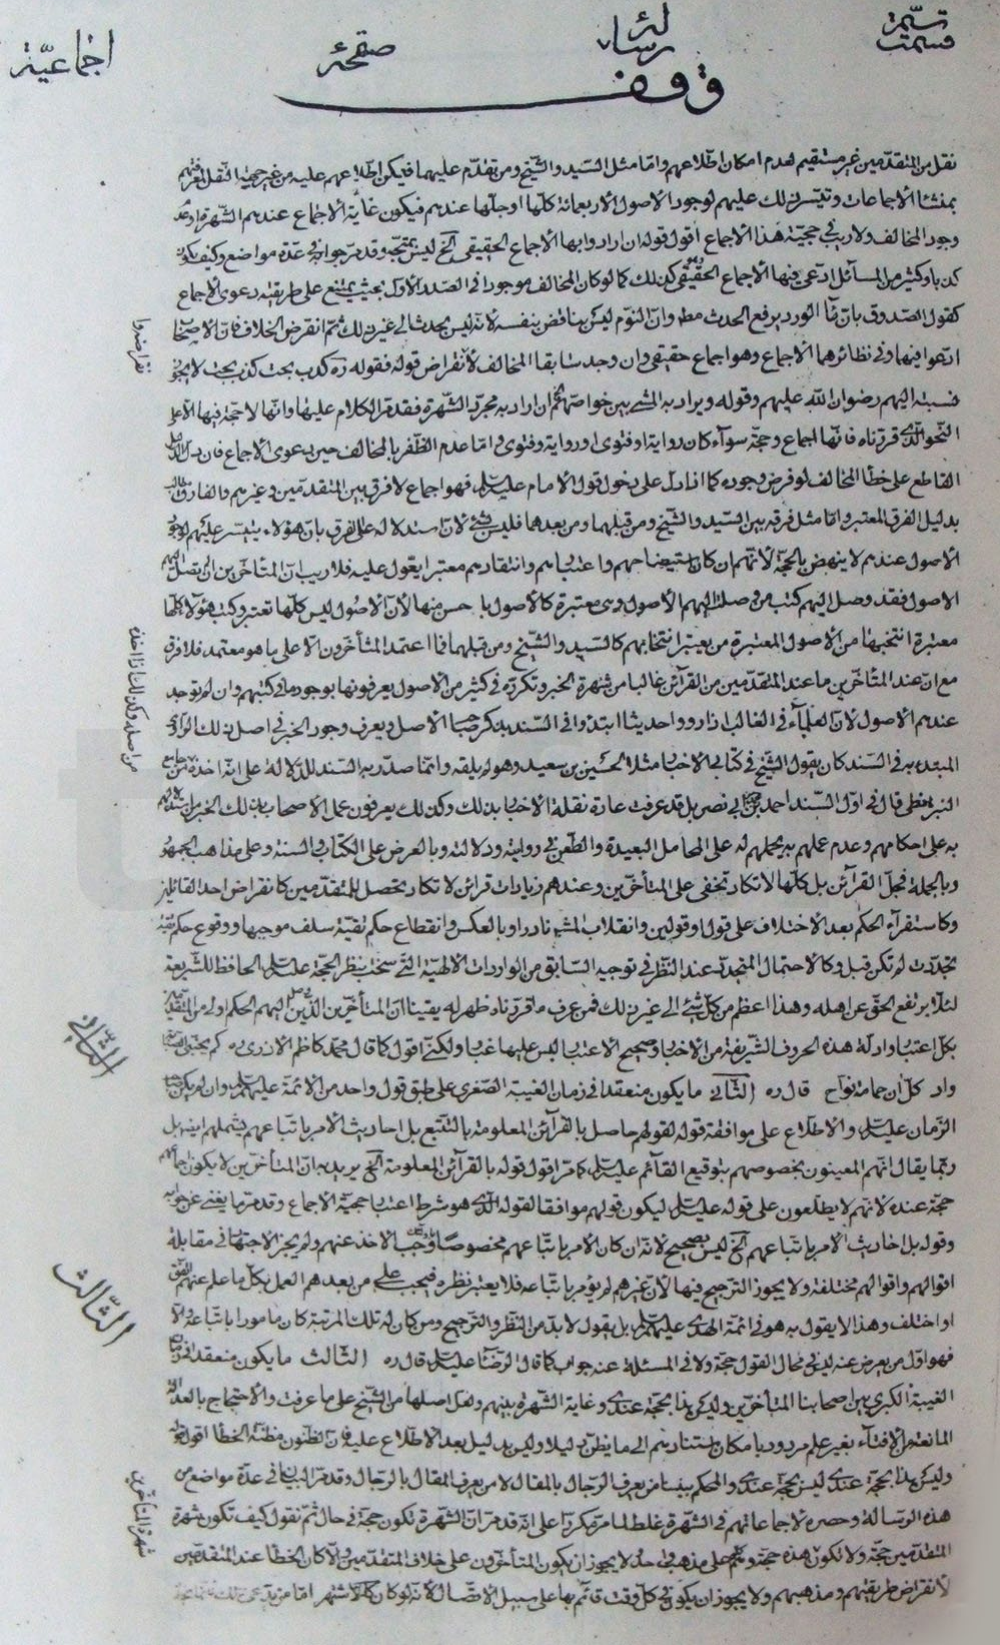 قسمت
رسالة
صفحة
اجماعية
وقف
نقل من المتقدمين غير مستقيم لعدم امكان اطلاعهم واما مثل السيد والشيخ ومن تقدم عليهما فيمكن اطلاعهم عليه من غير جهة النقل
بمنشا الاجماعات وتيسر ذلك عليهم لوجود الاصول الاربعمائة كلها او جلها عندهم فيكون غاية الاجماع عندهم الشهرة
وجود المخالف ولا ريب في حجية هذا الاجماع اقول قوله ان ارادوا بها الاجماع الحقيقي الخ ليس بمتجه وقد مر جوابه في عدة مواضع وكيف يكون
كذبا وكثير من المسائل ادعي فيها الاجماع الحقيقي وهو كذلك كما لو كان المخالف موجودا في الصدر الاول بحيث يمتنع على طريقته دعوى الاجماع
كقول الصدوق بان ماء الورد يرفع الحدث مط وان النوم ليس بناقض بنفسه لانه ليس بحدث الى غير ذلك ثم انقرض الخلاف فان الاصحاب
ادعوا فيها وفي نظائرهما الاجماع وهو اجماع حقيقي وان وجد سابقا المخالف لانقراض قوله فقوله ره كذب بحت كذب بحت لا يجوز
نسبته اليهم رضوان الله عليهم وقوله ويراد به الشيء بين خواصهم الخ ان اراد به مجرد الشهرة فقد مر الكلام عليها وانها لا حجة فيها الا على
النحو الذي قررناه فانها اجماع وحجة سوآء كان رواية او فتوى او رواية وفتوى واما عدم الظفر بالمخالف حين دعوى الاجماع فان دل الدليل
القاطع على خطأ المخالف لو فرض وجوده كما اذا دل على دخول قول الامام عليه السلم فهو اجماع لا فرق بين المتقدمين وغيرهم والفارق
بدليل الفرق المعتبر واما مثل فرقه بين السيد والشيخ ومن قبلهما ومن بعدهما فليس بشئ لان استدلاله على الفرق بان هؤلاء يتيسر عليهم لوجود
الاصول عندهم لا ينهض بالحجة لانهم ان كان استيضاحهم واعتبارهم وانتقادهم معتبرا يعول عليه فلا ريب ان المتأخرين ان لم تصل اليهم
الاصول فقد وصل اليهم كتب من وصلت اليهم الاصول وهي معتبرة كالاصول بل احسن منها لان الاصول ليس كلها تعتبر وكتب هؤلاء كلها
معتبرة انتخبها من الاصول المعتبرة من يعتبر انتخابهم كالسيد والشيخ ومن قبلهما فما اعتمد المتأخرون الا على ما هو معتمد فلا فرق
مع ان عند المتأخرين ما عند المتقدمين من القرآئن غالبا من شهرة الخبر وتكرره في كثير من الاصول يعرفونها بوجودها في كتبهم وان لم توجد
عندهم الاصول لان العلمآء في الغالب اذا رووا حديثا ابتدؤا في السند بذكر صاحب الاصل ويعرف وجود الخبر في اصل ذلك الراوي
المبتدء به في السند كان يقول الشيخ في كتابي الاخبار مثلا الحسين بن سعيد وهو لم يلقه وانما صدر به السند للدلالة على انه اخذه من جامع
البزنطي قال في اول السند احمد بن ابي نصر بل قد عرفت عادة نقلة الاخبار بذلك وكذلك يعرفون عمل الاصحاب بذلك الخبر من استدلالهم
به على احكامهم وعدم عملهم به بحملهم له على المحامل البعيدة والطعن في روايته ودلالته وبالعرض على الكتاب والسنة وعلى مذاهب الجمهور
وبالجملة فجل القرآئن بل كلها لا تكاد تخفى على المتأخرين وعندهم زيادات قرائن لا تكاد تحصل للمتقدمين كانقراض احد القائلين
وكاستقرآء الحكم بعد الاختلاف على قول او قولين وانقلاب المشهور نادرا وبالعكس وانقطاع حكم تقية سلف موجبها ووقوع حكم تقية
تجددت لم تكن قبل وكالاحتمال المتجدد عند النظر في توجيه السابق من الواردات الالهية التي سنحت بنظر الحجة عليه السلم الحافظ للشريعة
لئلا يرتفع الحق عن اهله وهذا اعظم من كل شئ الى غير ذلك فمن عرف ما قررناه ظهر له يقينا ان المتأخرين الذين وصل اليهم الحكم اولى من المتقدمين
بكل اعتبار وادلة هذه الحروف الشريفة من الاخبار وصحيح الاعتبار ليس عليها غبار ولكني اقول كما قال محمد كاظم الازري ره
واد كل ان حمامه نواح قال ره الثاني ما يكون منعقدا في زمان الغيبة الصغرى على طبق قول واحد من الائمة عليهم السلم وان لم يكن
الزمان عليه السلم والاطلاع على موافقة قوله لقولهم حاصل بالقرآئن المعلومة بالتتبع بل احاديث الامر باتباعهم يشملهم ايضا بل
ربما يقال انهم المعينون بخصوصهم بتوقيع القآئم عليه السلم كما مر اقول قوله بالقرآئن المعلومة الخ يريد به ان المتأخرين لا يكون اجماعهم
حجة عنده لانهم لا يطلعون على قوله عليه السلم ليكون قولهم موافقا لقوله الذي هو شرط اعتبار حجية الاجماع وقد مر ما يغني عن جوابه
وقوله بل احاديث الامر باتباعهم الخ ليس بصحيح لانه ان كان الامر باتباعهم مخصوصا وجب الاخذ عنهم ولم يجز الاجتهاد في مقابلة
اقوالهم واقوالهم مختلفة ولا يجوز الترجيح فيها لان غيرهم لم يؤمر باتباعه فلا يعتبر نظره فيجب على من بعدهم العمل بكل ما علم عنهم اتفق
او اختلف وهذا لا يقول به هو في ائمة الهدى عليهم السلم بل يقول لا بد من النظر والترجيح ومن كان له تلك المرتبة كان مامورا باتباعه والا
فهو اول من يعرض عنه ليس في محال القول حجة ولا في المسئلة عنه جواب كما قال الرضا عليه السلم قال ره الثالث ما يكون منعقدا في زمان
الغيبة الكبرى بين اصحابنا المتأخرين وليس هذا بحجة عندي وغاية الشهرة بينهم ولعل اصلها من الشيخ على ما عرفت والاحتجاج بالعدالة
المانعة من الافتآء بغير علم مردود بامكان استنادهم الى ما يظن دليلا وليس بدليل بعد الاطلاع عليه فان الظنون مظنة الخطا اقول قوله
وليس هذا بحجة عندي ليس بحجة عندي والحكم بيننا من يعرف الرجال بالمقال لا من يعرف المقال بالرجال وقد مر البيان في عدة مواضع من
هذه الرسالة وحصره لاجماعاتهم في الشهرة غلط لما مر مكررا على انه قد مر ان الشهرة تكون حجة في حال ثم نقول كيف تكون شهرة
المتقدمين حجة ولا تكون هذه حجة وهم على مذهب في حال لا يجوز ان يكون المتأخرون على خلاف المتقدمين والا كان الخطا عند المتقدمين
لانقراض طريقتهم ومذهبهم ولا يجوز ان يكون في كل وقت قائم بها على سبيل الاتصال لانه لو كان كذلك لاشتهر
انقرضوا
الثاني
الثالث
شهرة المتأخرين